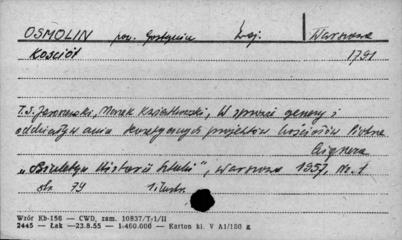 OSMOLIN pow. Gostynin woj. Warszawa
Kościół 1791
T.S. Jaroszewski, Marek Kwiatkowski, W sprawie genezy i
oddziaływania koncepcyjnych projektów kościołów Piotra
Aignera
„Biuletyn Historii Sztuki”, Warszawa 1957, Nr. 1
str. 79 1 ilustr.
Wzór KD-156 — CWD, zam. 10837/T/1/II
2445 — Łak —23.8.55 — 1:460.000 — Karton kl. V A1/180 g